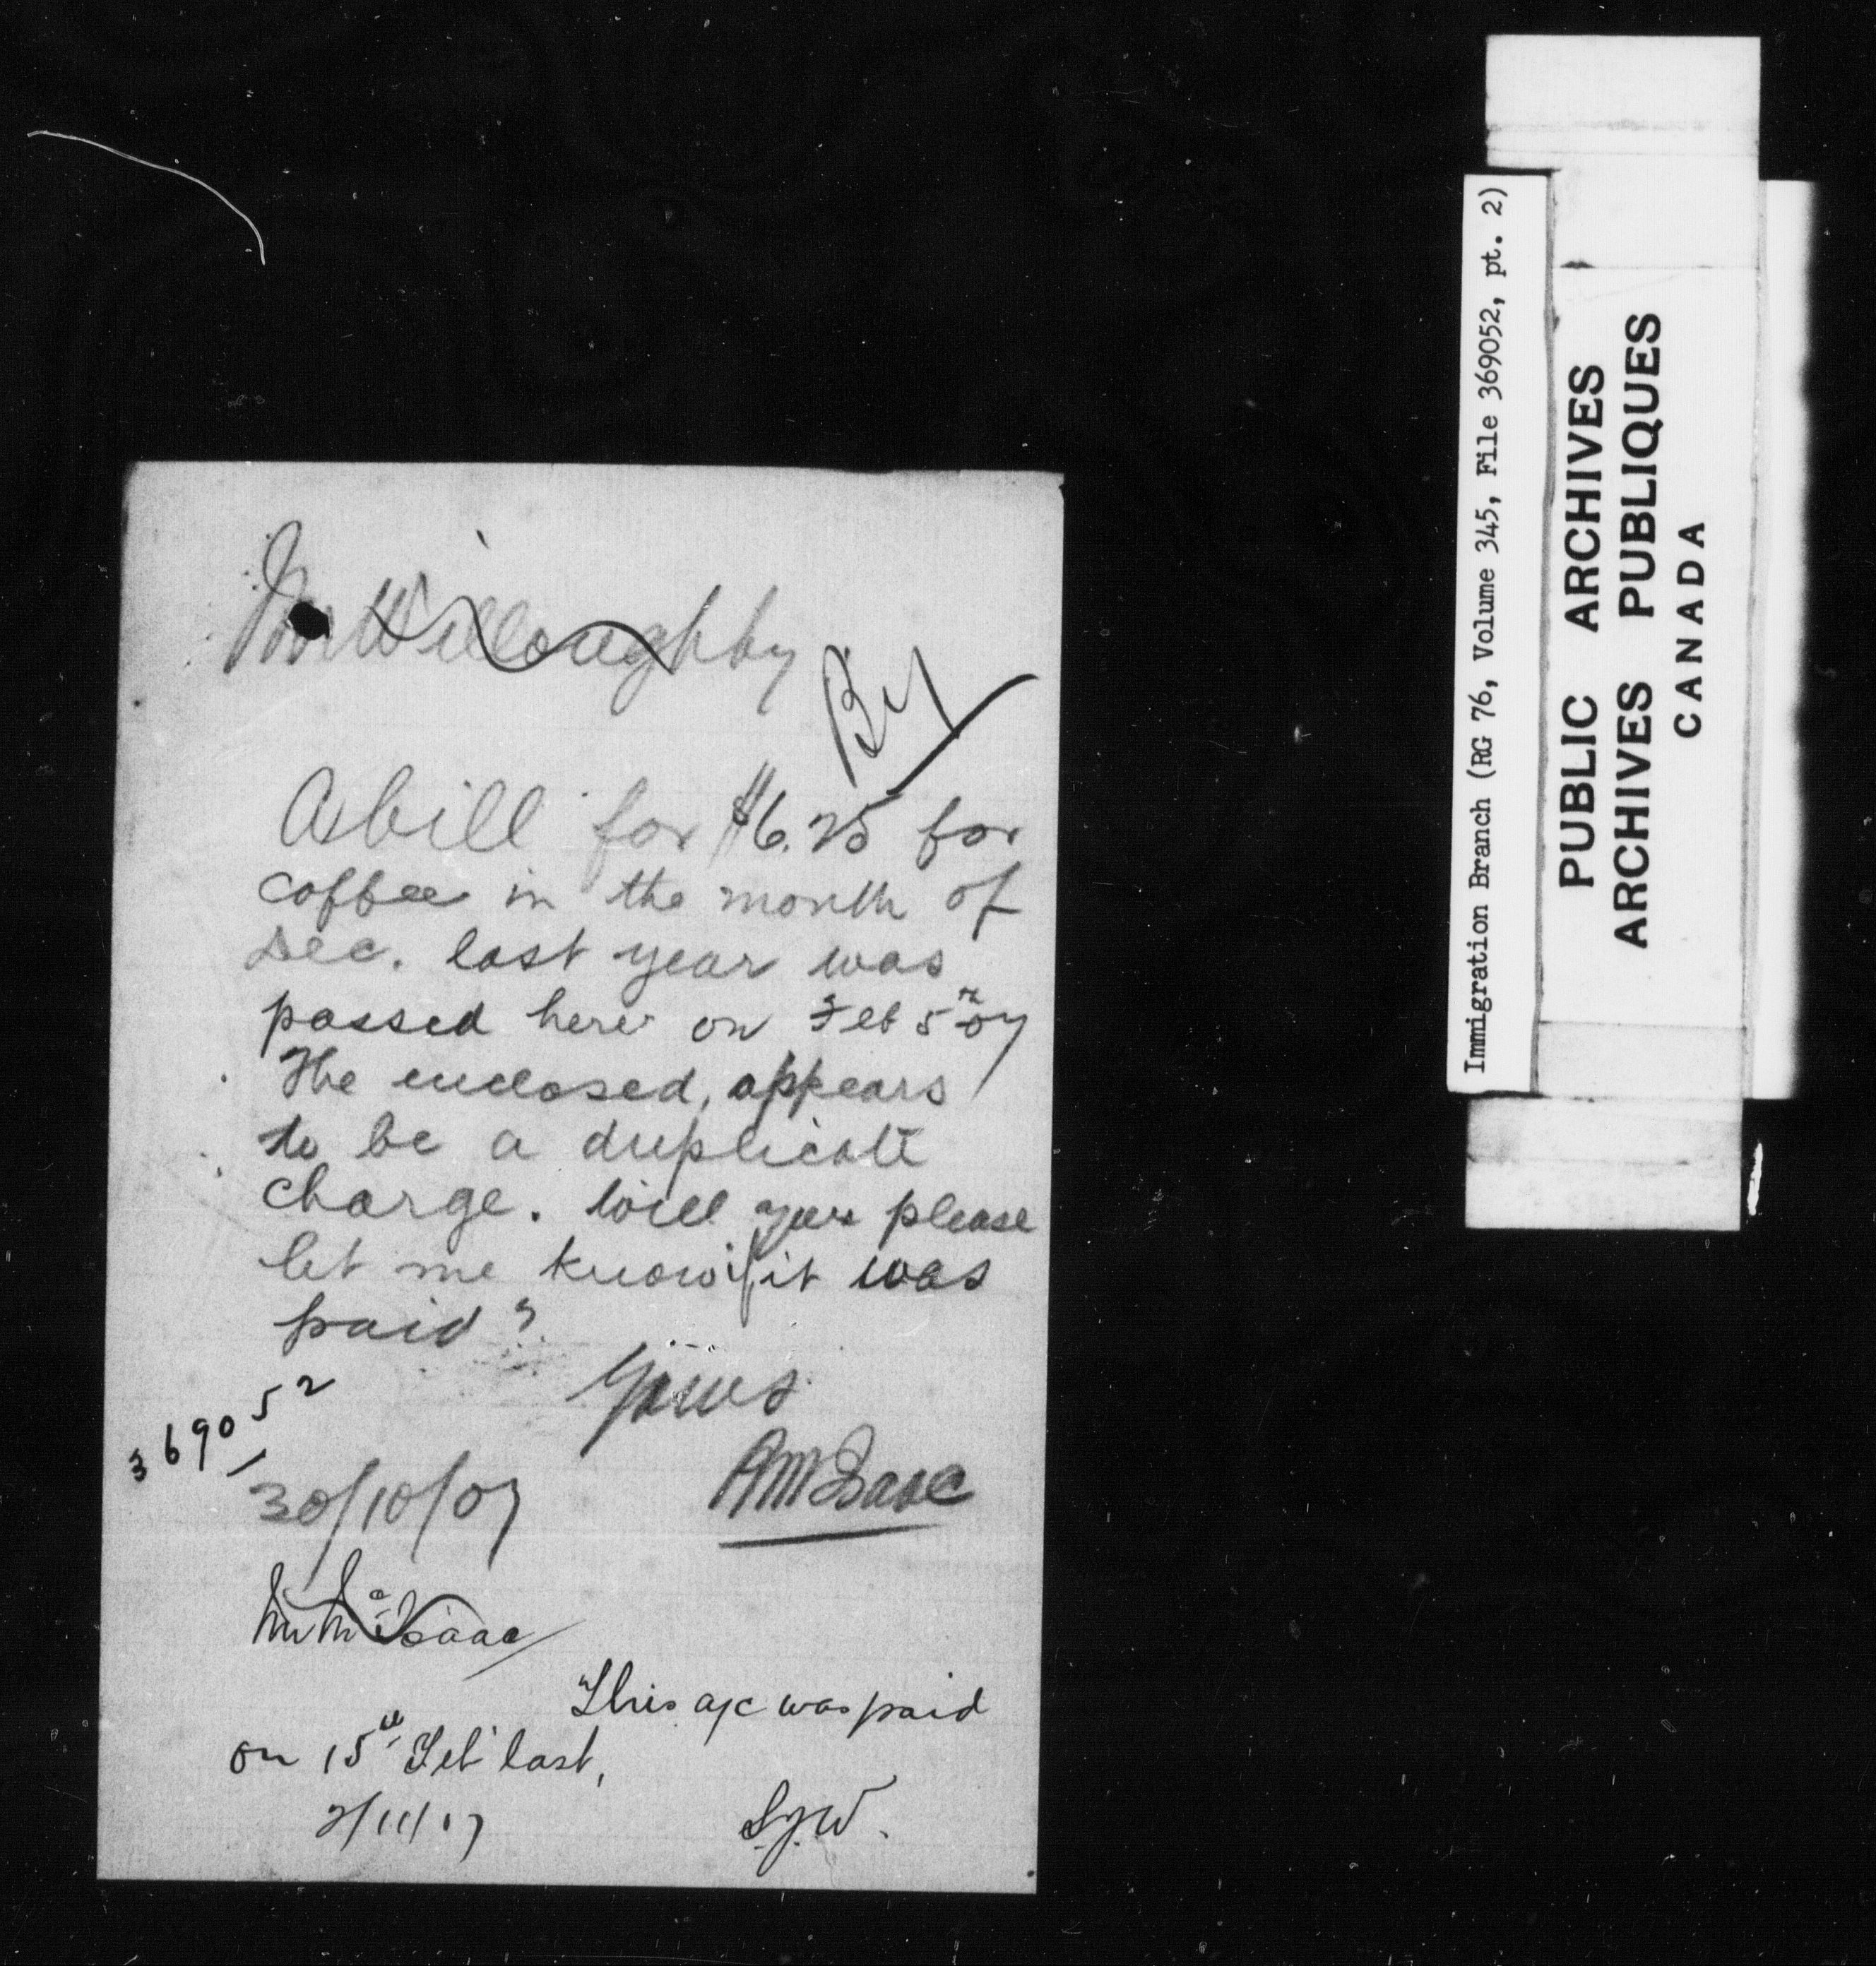 Mr Willoughby
By
A bill for $6.25 for
coffee in the month of
Dec. last year was
passed here on Feb 5th 07
The enclosed, appears
to be a duplicate
charge. Will you please
let me know if it was
paid?
Yours
369052
30/10/07
Mr McIsaac
This a/c was paid
on 15th Feb last,
2/11/07
Immigration Branch (RG 76, Volume 345, File 369052, pt. 2)
PUBLIC ARCHIVES
ARCHIVES PUBLIQUES
CANADA